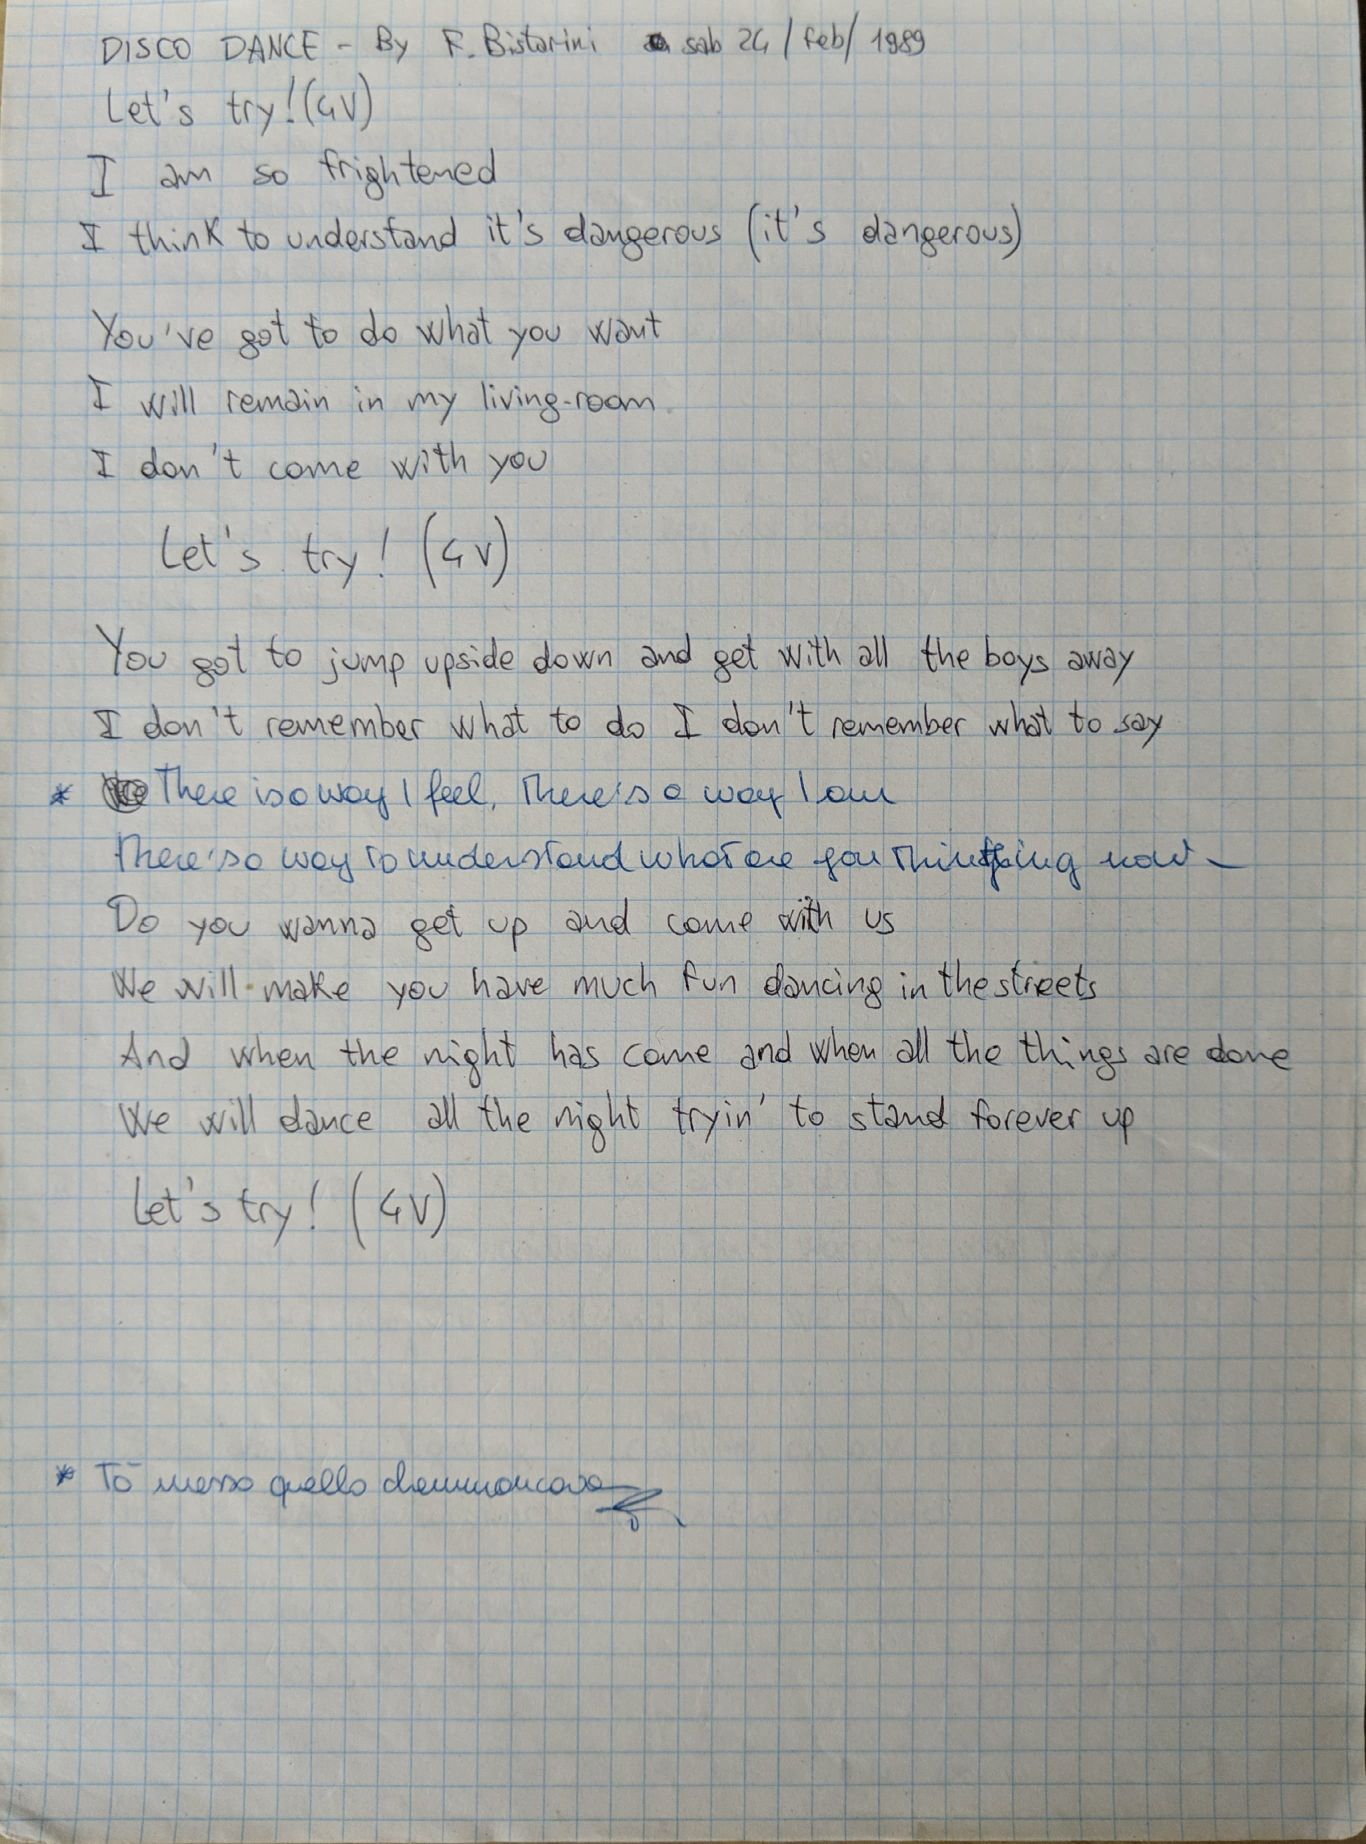 DISCO DANCE - By F. Bistarini sab 24/feb/1989
Let's try! (4V)
I am so frightened
I think to understand it's dangerous (it's dangerous)
You've got to do what you want
I will remain in my living-room
I don't come with you
Let's try! (4V)
You got to jump upside down and get with all the boys away
I don't remember what to do I don't remember what to say
* There is a way I feel, There's a way I am
There's a way to understand what are you thinking now
Do you wanna get up and come with us
We will make you have much fun dancing in the streets
And when the night has come and when all the things are done
We will dance all the night tryin' to stand forever up
Let's try! (4V)
* Tò messo quello che mancava